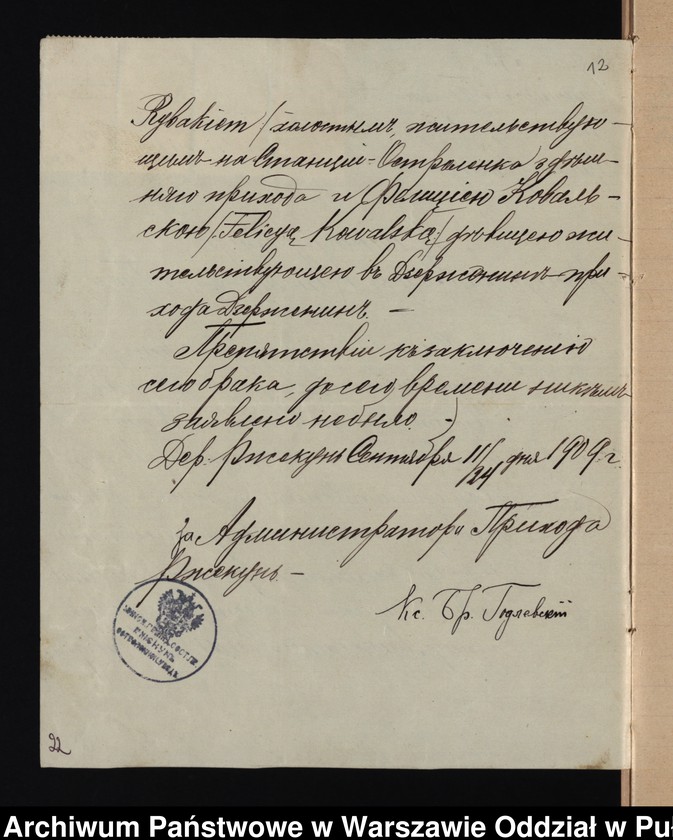 12
Rybakiem/холостымъ, жительствую-
щимъ на Станціи-Остроленка здѣш-
няго прихода и Фелиціею Коваль-
скою/Felicyą Kowalską/дѣвицею жи-
тельствующею въ Дзержанинъ при-
хода Дзержанинъ. —
Препятствій къ заключенію
сего брака, до сего времени никѣмъ
заявлено не было. —
Дер. Ржекунь Сентября 11/24 дня 1909 г.
За Администратора Прихода
Ржекунь —
Кс. Бр. Годлевскій
22
Archiwum Państwowe w Warszawie Oddział w Puł